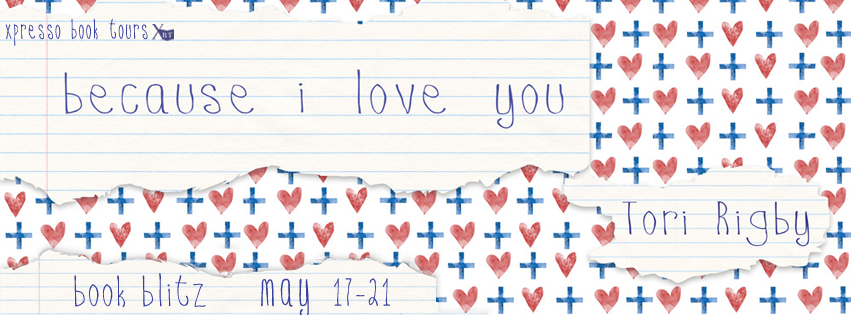 xpresso book tours XBT
because i love you
Tori Rigby
book blitz may 17-21